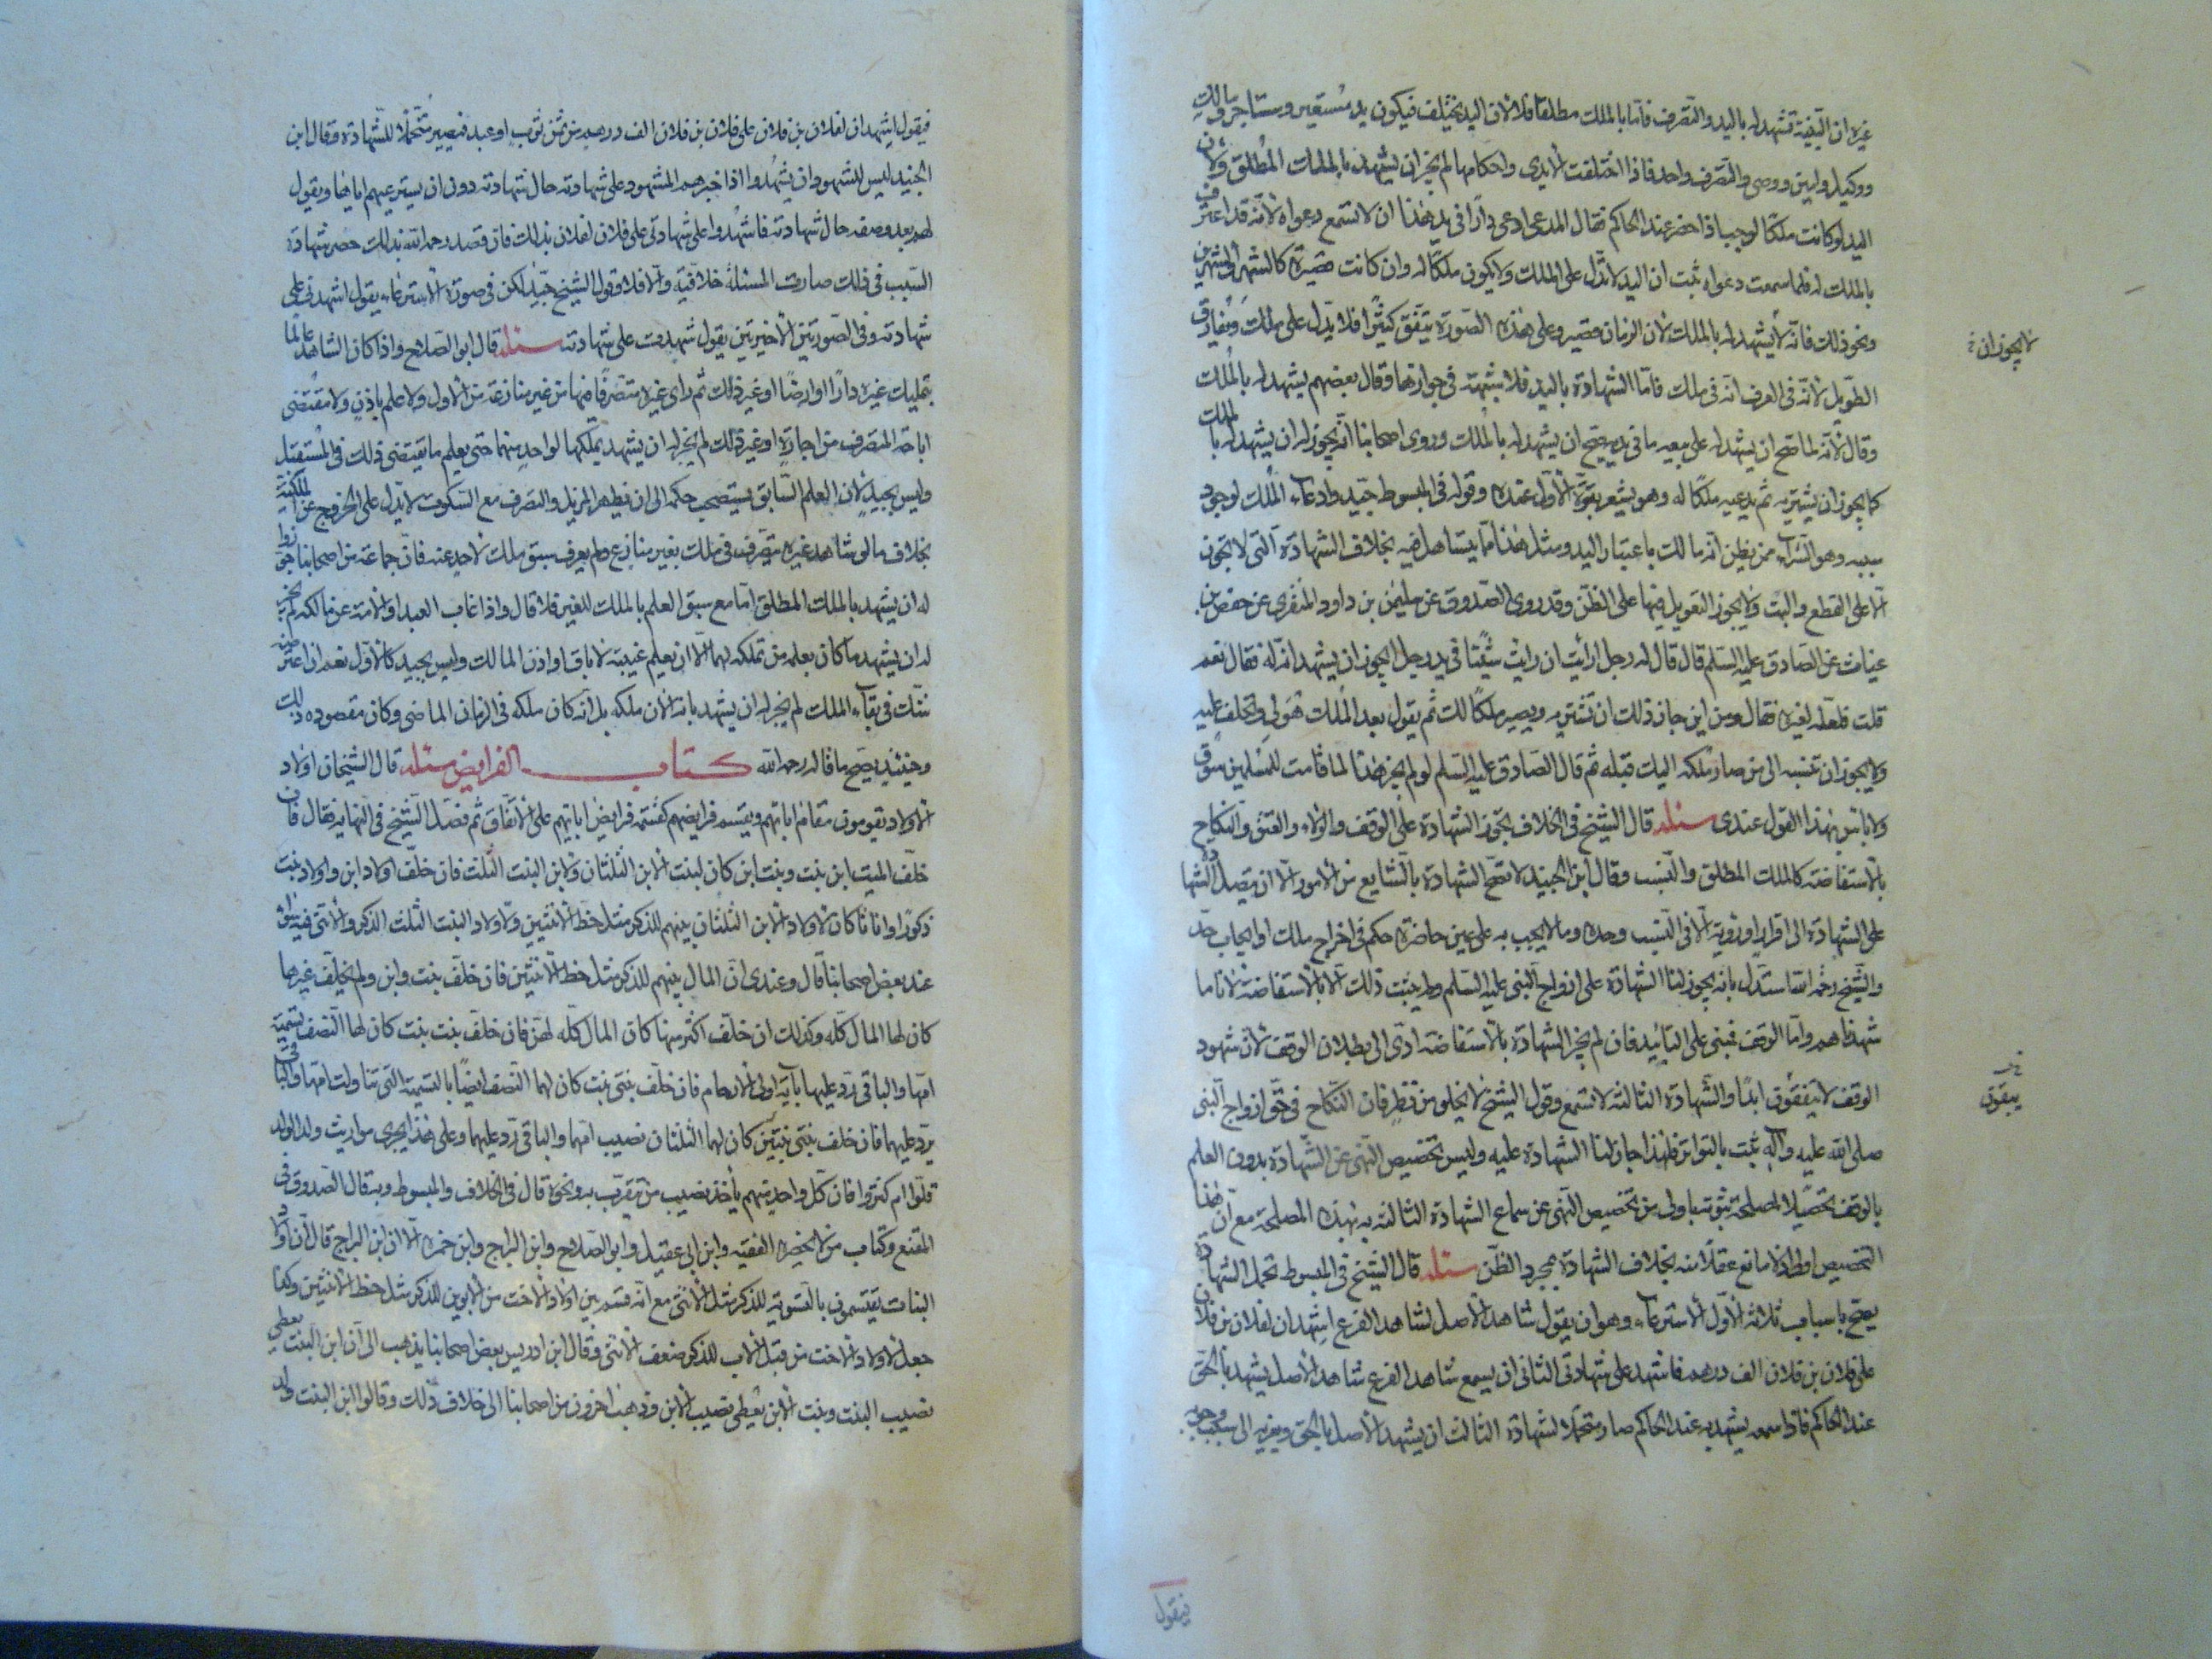 غيره ان البينة تشهد له باليد والتصرف فاما بالملك مطلقا فلا لان اليد يختلف فيكون يد مستعير ومستاجر ومالك
ووكيل وامين ووصى والتصرف واحد فاذا اختلفت الايدى واحكامها لم يجز ان يشهد بالملك المطلق ولان
اليد لو كانت ملكا لوجب اذا حضر عند الحاكم فقال المدعى ادعى دارا فى يد هذا ان لا تسمع دعواه لانه قد اعترف
بالملك له فلما سمعت دعواه ثبت ان اليد لا تدل على الملك ولا يكون ملكا له وان كانت قصيرة كالشهر والشهرين
ونحو ذلك فانه لا يشهد له بالملك لان الزمان قصير وعلى هذه الصورة يتفق كثيرا فلا يدل على ملك ويفارق
لا يجوز ان
الطويل لانه فى العرف انه فى ملك فاما الشهادة باليد فلا شبهة فى جوازها وقال بعضهم يشهد له بالملك
وقال لانه لما صح ان يشهد له على بيعه ما فى يده صح ان يشهد له بالملك وروى اصحابنا انه يجوز له ان يشهد له بالملك
كما يجوز ان يشتريه ثم يدعيه ملكا له وهو يشعر بقوة الاول عنده وقوله فى المبسوط جيد وادعاء الملك لوجود
سببه وهو الشراء ممن يظن انه مالك باعتبار اليد ومثل هذا مما يتساهل فيه بخلاف الشهادة التى لا تجوز
الا على القطع والبت ولا يجوز التعويل فيها على الظن وقد روى الصدوق عن سليمن بن داود المنقرى عن حفص بن
غياث عن الصادق عليه السلم قال قال له رجل ارايت ان رايت شيئا فى يد رجل ايجوز ان يشهد انه له فقال نعم
قلت فلعله لغيره فقال ومن اين جاز ذلك ان تشتريه ويصير ملكا لك ثم يقول بعد الملك هو لى وتحلف عليه
ولا يجوز ان تنسبه الى من صار ملكه اليك قبله ثم قال الصادق عليه السلم لو لم يجز هذا لما قامت للمسلمين سوق
ولا باس بهذا القول عندى مسئله قال الشيخ فى الخلاف يجوز الشهادة على الوقف والولاء والعتق والنكاح
بالاستفاضة كالملك المطلق والنسب وقال ابن الجنيد لا تصح الشهادة بالشايع من الامور الا ان يتصل الشهادة
على الشهادة الى اقرار او روية الا فى النسب وحده وما لا يجب به على عين حاضرة حكم فى اخراج ملك او ايجاب حد
والشيخ رحمه الله استدل بانه يجوز لنا الشهادة على ازواج النبى عليه السلم ولم يثبت ذلك الا بالاستفاضة لانا ما
شهدناهم واما الوقف فمبنى على التابيد فان لم يجز الشهادة بالاستفاضة ادى الى بطلان الوقف لان شهود
الوقف لا يتفقون ابدا والشهادة الثالثة لا تسمع وقول الشيخ لا يخلو من نظر فان النكاح فى حق ازواج النبى
يبقون
صلى الله عليه واله ثبت بالتواتر فلهذا جاز لنا الشهادة عليه وليس تخصيص النهى عن الشهادة بدون العلم
بالوقف تحصيلا لمصلحة ثبوته باولى من تخصيص النهى عن سماع الشهادة الثالثة به بهذه المصلحة مع ان هذا
التخصيص اولى اذ لا مانع عقلا منه بخلاف الشهادة بمجرد الظن مسئله قال الشيخ فى المبسوط تحمل الشهادة
يصح باسباب ثلاثة الاول الاسترعاء وهو ان يقول شاهد الاصل لشاهد الفرع اشهد ان لفلان بن فلان
على فلان بن فلان الف درهم فاشهد على شهادتى الثانى ان يسمع شاهد الفرع شاهد الاصل يشهد بالحق
عند الحاكم فاذا سمعه يشهد به عند الحاكم صار متحملا لشهادة الثالث ان يشهد الاصل بالحق ويعزيه الى سبب وجوبه
فيقول
فيقول اشهد ان لفلان بن فلان على فلان بن فلان الف درهم من ثمن ثوب او عبد فيصير متحملا للشهادة وقال ابن
الجنيد ليس للشهود ان يشهدوا اذا خبرهم المشهود على شهادته حال شهادته دون ان يسترعيهم اياها ويقول
لهم بعد وصفه حال شهادته فاشهدوا على شهادتى على فلان لفلان بذلك فان قصد رحمه الله بذلك حصر شهادة
السبب فى ذلك صارت المسئلة خلافية والا فلا وقول الشيخ جيد لكن فى صورة الاسترعاء يقول اشهدنى على
شهادته وفى الصورتين الاخيرتين يقول شهدت على شهادته مسئله قال ابو الصلاح واذا كان الشاهد عالما
بتمليك غيره دارا او ارضا او غير ذلك ثم راى غيره متصرفا فيها من غير منازعة من الاول ولا علم باذن ولا مقتضى
اباحة المتصرف من اجارة او غير ذلك لم يجز له ان يشهد بملكها لواحد منهما حتى يعلم ما يقتضى ذلك فى المستقبل
وليس بجيد لان العلم السابق يستصحب حكمه الى ان يظهر المزيل والتصرف مع السكوت لا يدل على الخروج عن الملكية
بخلاف ما لو شاهد غيره يتصرف فى ملك بغير منازع ولم يعرف سبق ملك لاحد عنه فان جماعة من اصحابنا جوزوا
له ان يشهد بالملك المطلق اما مع سبق العلم بالملك للغير فلا قال واذا غاب العبد او الامة عن مالكه لم يجز
له ان يشهد بما كان يعلمه من تملكه لهما الا ان يعلم غيبته لاباق او اذن المالك وليس بجيد كالاول نعم اذا اعترضه
شك فى بقاء الملك لم يجز له ان يشهد بانه الان ملكه بل انه كان ملكه فى الزمان الماضى وكان مقصوده ذلك
وحينئذ يصح ما قاله رحمه الله كتاب الفرايض مسئله قال الشيخان اولاد
الاولاد يقومون مقام ابائهم ويقسم فرايضهم كقسمة فرايض ابائهم على الاتفاق ثم فصل الشيخ فى النهاية فقال فان
خلف الميت ابن بنت وبنت ابن كان لبنت الابن الثلثان ولابن البنت الثلث فان خلف اولاد ابن واولاد بنت
ذكورا واناثا كان لاولاد الابن الثلثان بينهم للذكر مثل حظ الانثيين ولاولاد البنت الثلث الذكر والانثى فيه سواء
عند بعض اصحابنا قال وعندى ان المال بينهم للذكر مثل حظ الانثيين فان خلف بنت وابن ولم يخلف غيرها
كان لها المال كله وكذلك ان خلف اكثر منها كان المال كله لهن فان خلف بنت بنت كان لها النصف تسمية
امها والباقى رد عليها باية اولى الارحام فان خلف بنتى بنت كان لهما النصف ايضا بالتسمية التى تناولت امها والباقى
يرد عليهما فان خلف بنتى بنتين كان لهما الثلثان نصيب امهما والباقى رد عليهما وعلى هذا يجرى مواريث ولد الولد
قلوا ام كثروا فان كل واحد منهم يأخذ نصيب من يتقرب به ونحوه قال فى الخلاف والمبسوط وبه قال الصدوق فى
المقنع وكتاب من لا يحضره الفقيه وابن ابى عقيل وابو الصلاح وابن البراج وابن حمزه الا ان ابن البراج قال ان اولاد
البنات يقتسمون بالتسوية للذكر مثل الانثى مع انه قسم بين اولاد الاخت من الابوين للذكر مثل حظ الانثيين وكذا
جعل لاولاد الاخت من قبل الاب للذكر ضعف الانثى وقال ابن ادريس بعض اصحابنا يذهب الى ان ابن البنت يعطى
نصيب البنت وبنت الابن يعطى نصيب الابن وذهب اخرون من اصحابنا الى خلاف ذلك وقالوا ابن البنت ولد